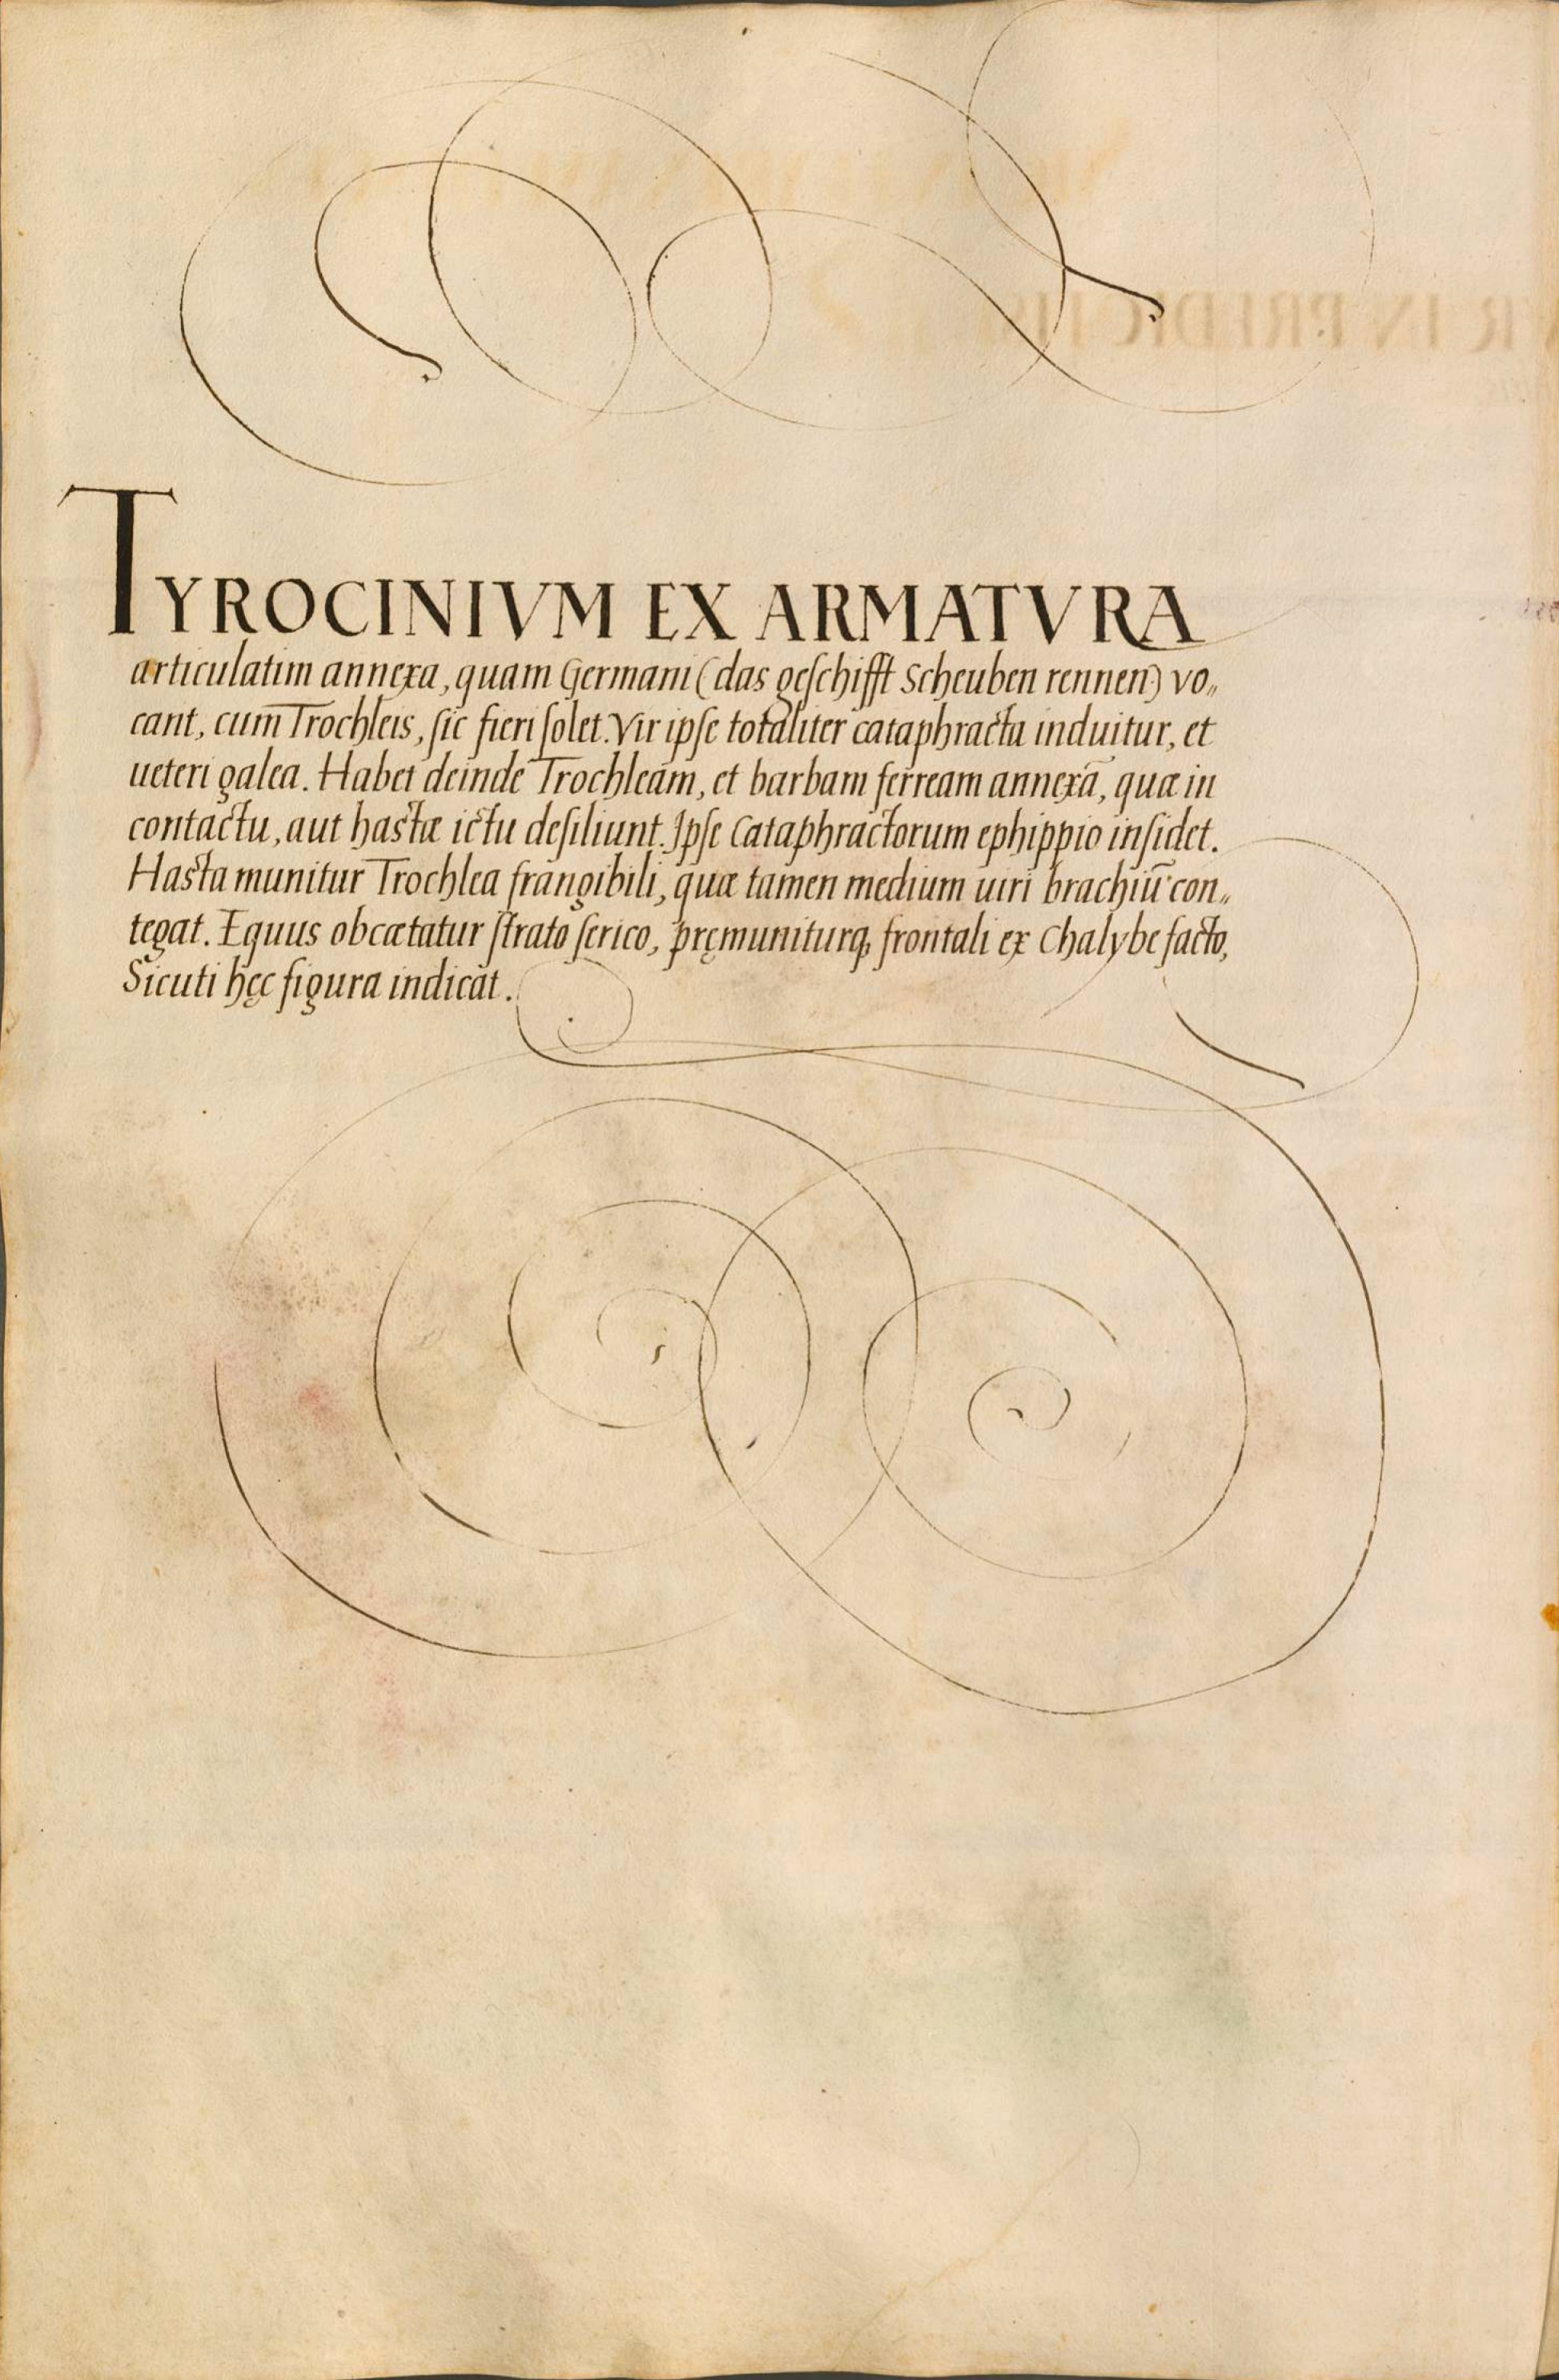 TYROCINIVM EX ARMATVRA
articulatim annexa, quam Germani (das geſchifft Scheuben rennen) vo„
cant, cum Trochleis, ſic fieri ſolet. Vir ipſe totaliter cataphracta induitur, et
ueteri galea. Habet deinde Trochleam, et barbam ferream annexā, quæ in
contactu, aut hastæ ictu deſiliunt. Ipſe Cataphractorum ephippio inſidet.
Hasta munitur Trochlea frangibili, quæ tamen medium uiri brachiū con„
tegat. Equus obcætatur ſtrato ſerico, pręmuniturq; frontali ex Chalybe facto,
Sicuti hęc figura indicat.